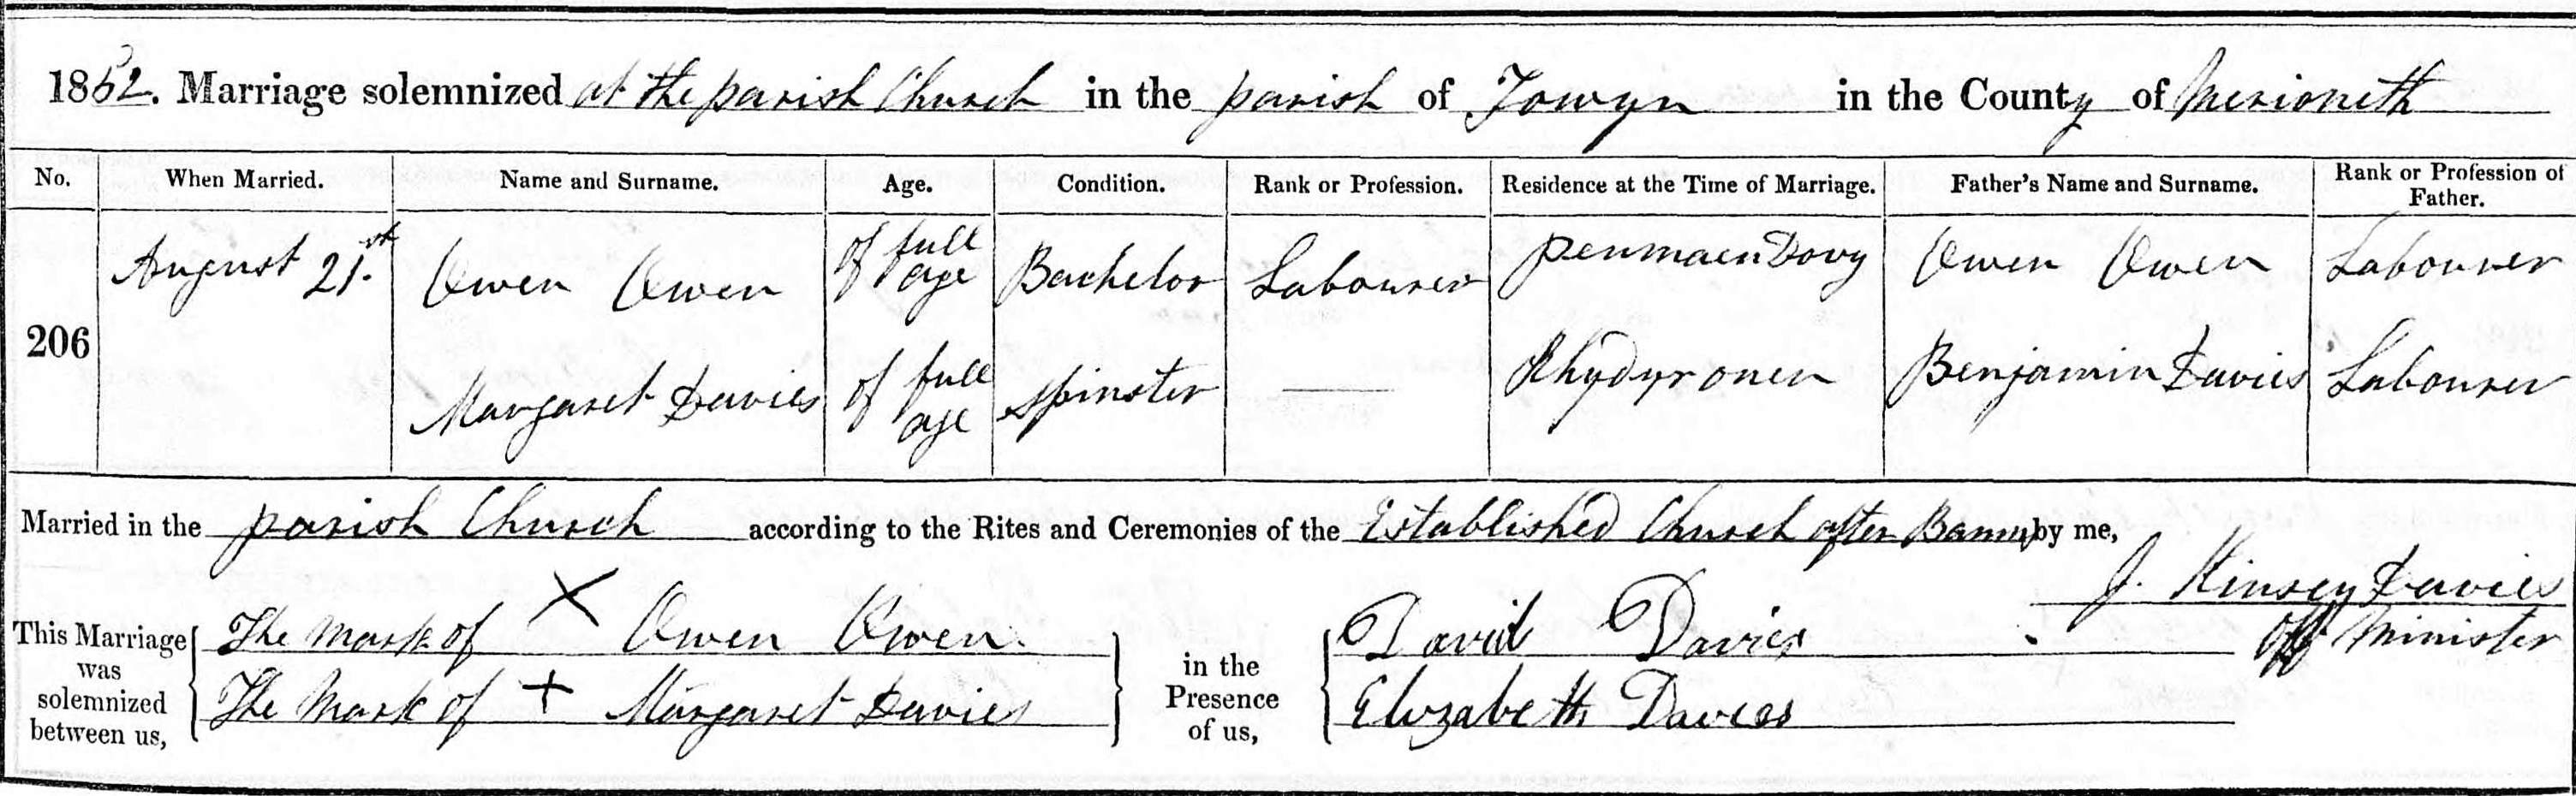 1852. Marriage solemnized at the parish Church in the parish of Towyn in the County of Merioneth
No. When Married. Name and Surname. Age. Condition. Rank or Profession. Residence at the Time of Marriage. Father's Name and Surname. Rank or Profession of Father.
206 August 21.st Owen Owen of full age Bachelor Labourer Penmaen Dovy Owen Owen Labourer
Margaret Davies of full age Spinster — Rhydyronen Benjamin Davies Labourer
Married in the parish Church according to the Rites and Ceremonies of the Established Church after Banns by me,
J. Kinsey Davies
Offg Minister
This Marriage was solemnized between us,
The mark of X Owen Owen.
The Mark of + Margaret Davies
in the Presence of us,
David Davies
Elizabeth Davies